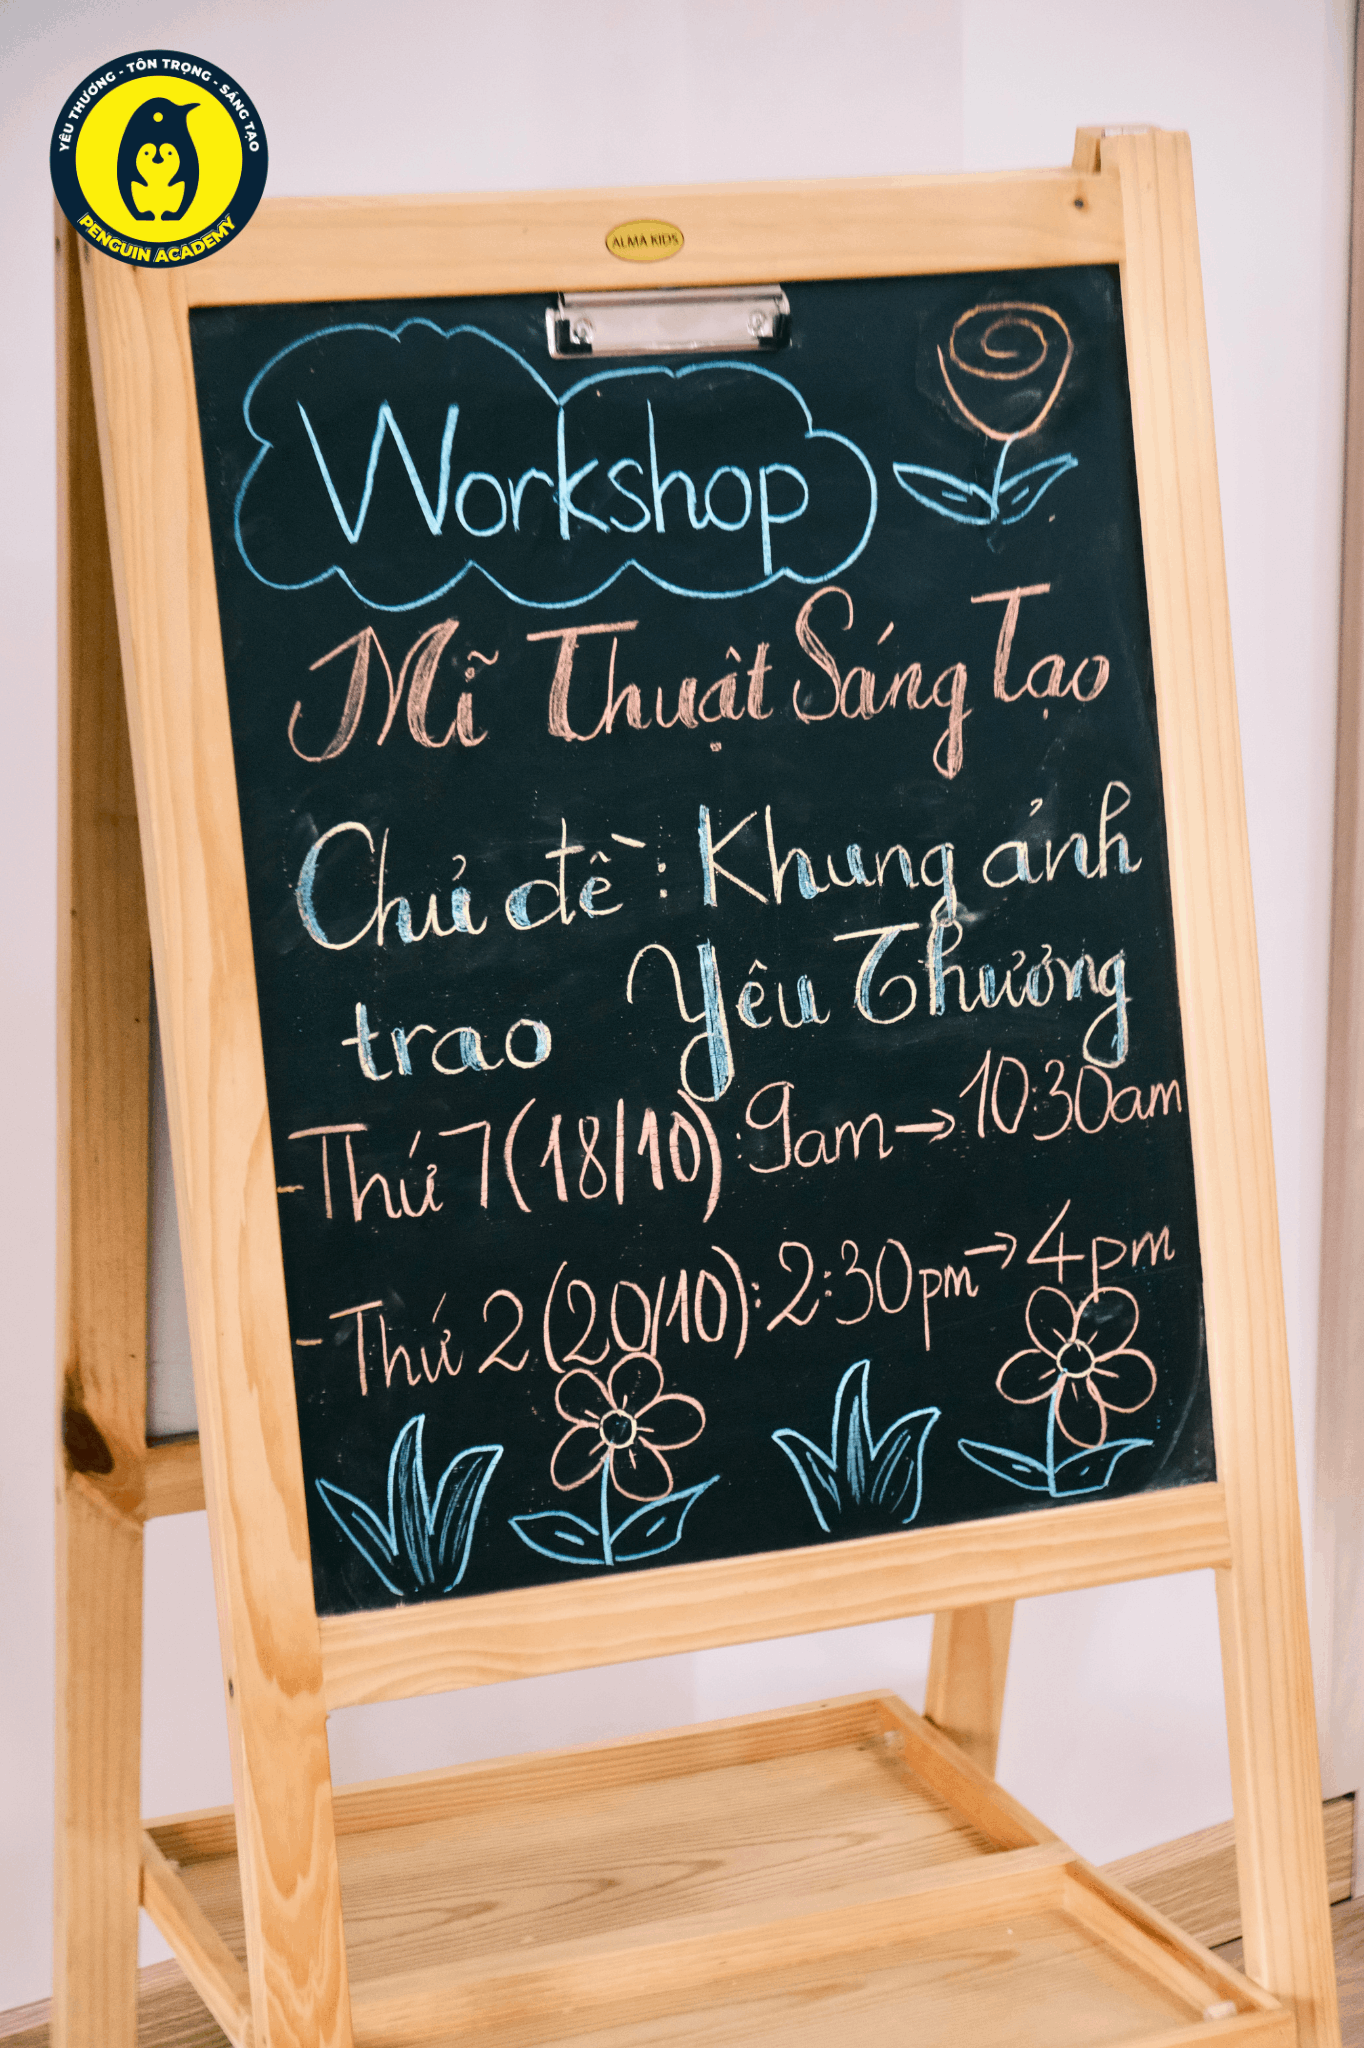 YÊU THƯƠNG - TÔN TRỌNG - SÁNG TẠO
PENGUIN ACADEMY
ALMA KIDS
Workshop
Mĩ Thuật Sáng Tạo
Chủ đề: Khung ảnh
trao Yêu Thương
- Thứ 7 (18/10): 9am → 10:30am
- Thứ 2 (20/10): 2:30pm → 4pm